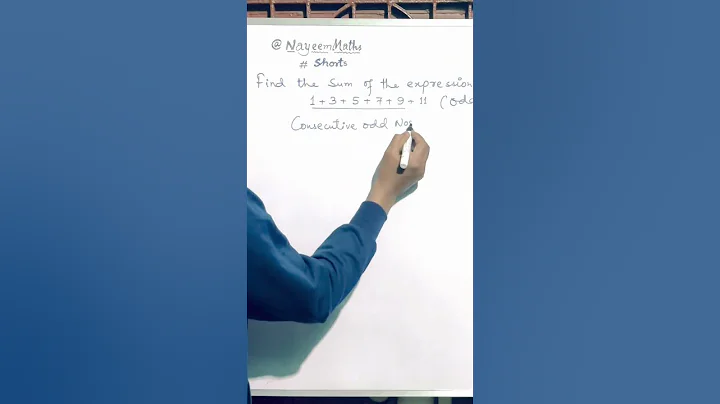 @ Nayeem Maths
# Shorts
Find the Sum of the expression
1 + 3 + 5 + 7 + 9 + 11 (Odd
Consecutive odd Nos